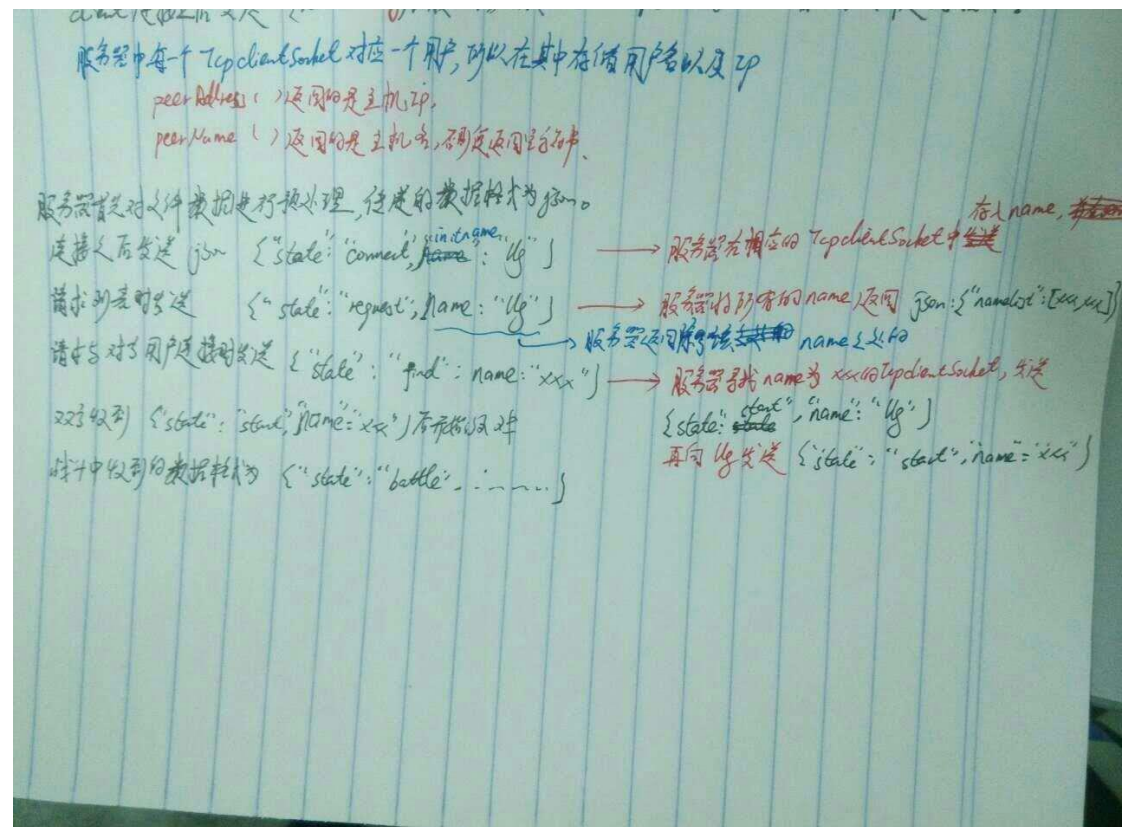 client 连接之后发送
服务器中每一个 TcpclientSocket 对应一个用户, 所以在其中存储用户名以及 Ip
peerAddress ( ) 返回的是主机 Ip,
peerName ( ) 返回的是主机名, 否则返回空字符串.
服务器首先对文件数据进行预处理, 传递的数据格式为 json。
存入 name,
连接之后发送 json {"state": "connect", "initname": "Ug"} → 服务器在相应的 TcpclientSocket 中
请求列表时发送 {"state": "request", name: "Ug"} → 服务器将所有的 name 返回 json: {"namelist": [xx, xx]}
→ 服务器返回除该 name 之外的
请求与对方用户连接时发送 {"state": "find": name: "xxx"} → 服务器寻找 name 为 xxx 的 TcpclientSocket, 发送
双方收到 {"state": "start", "name"="xx"} 后开始 {state: "start", "name": "Ug"}
再向 Ug 发送 {"state": "start", "name"="xxx"}
战斗中收到的数据格式为 {"state": "battle", ..........}